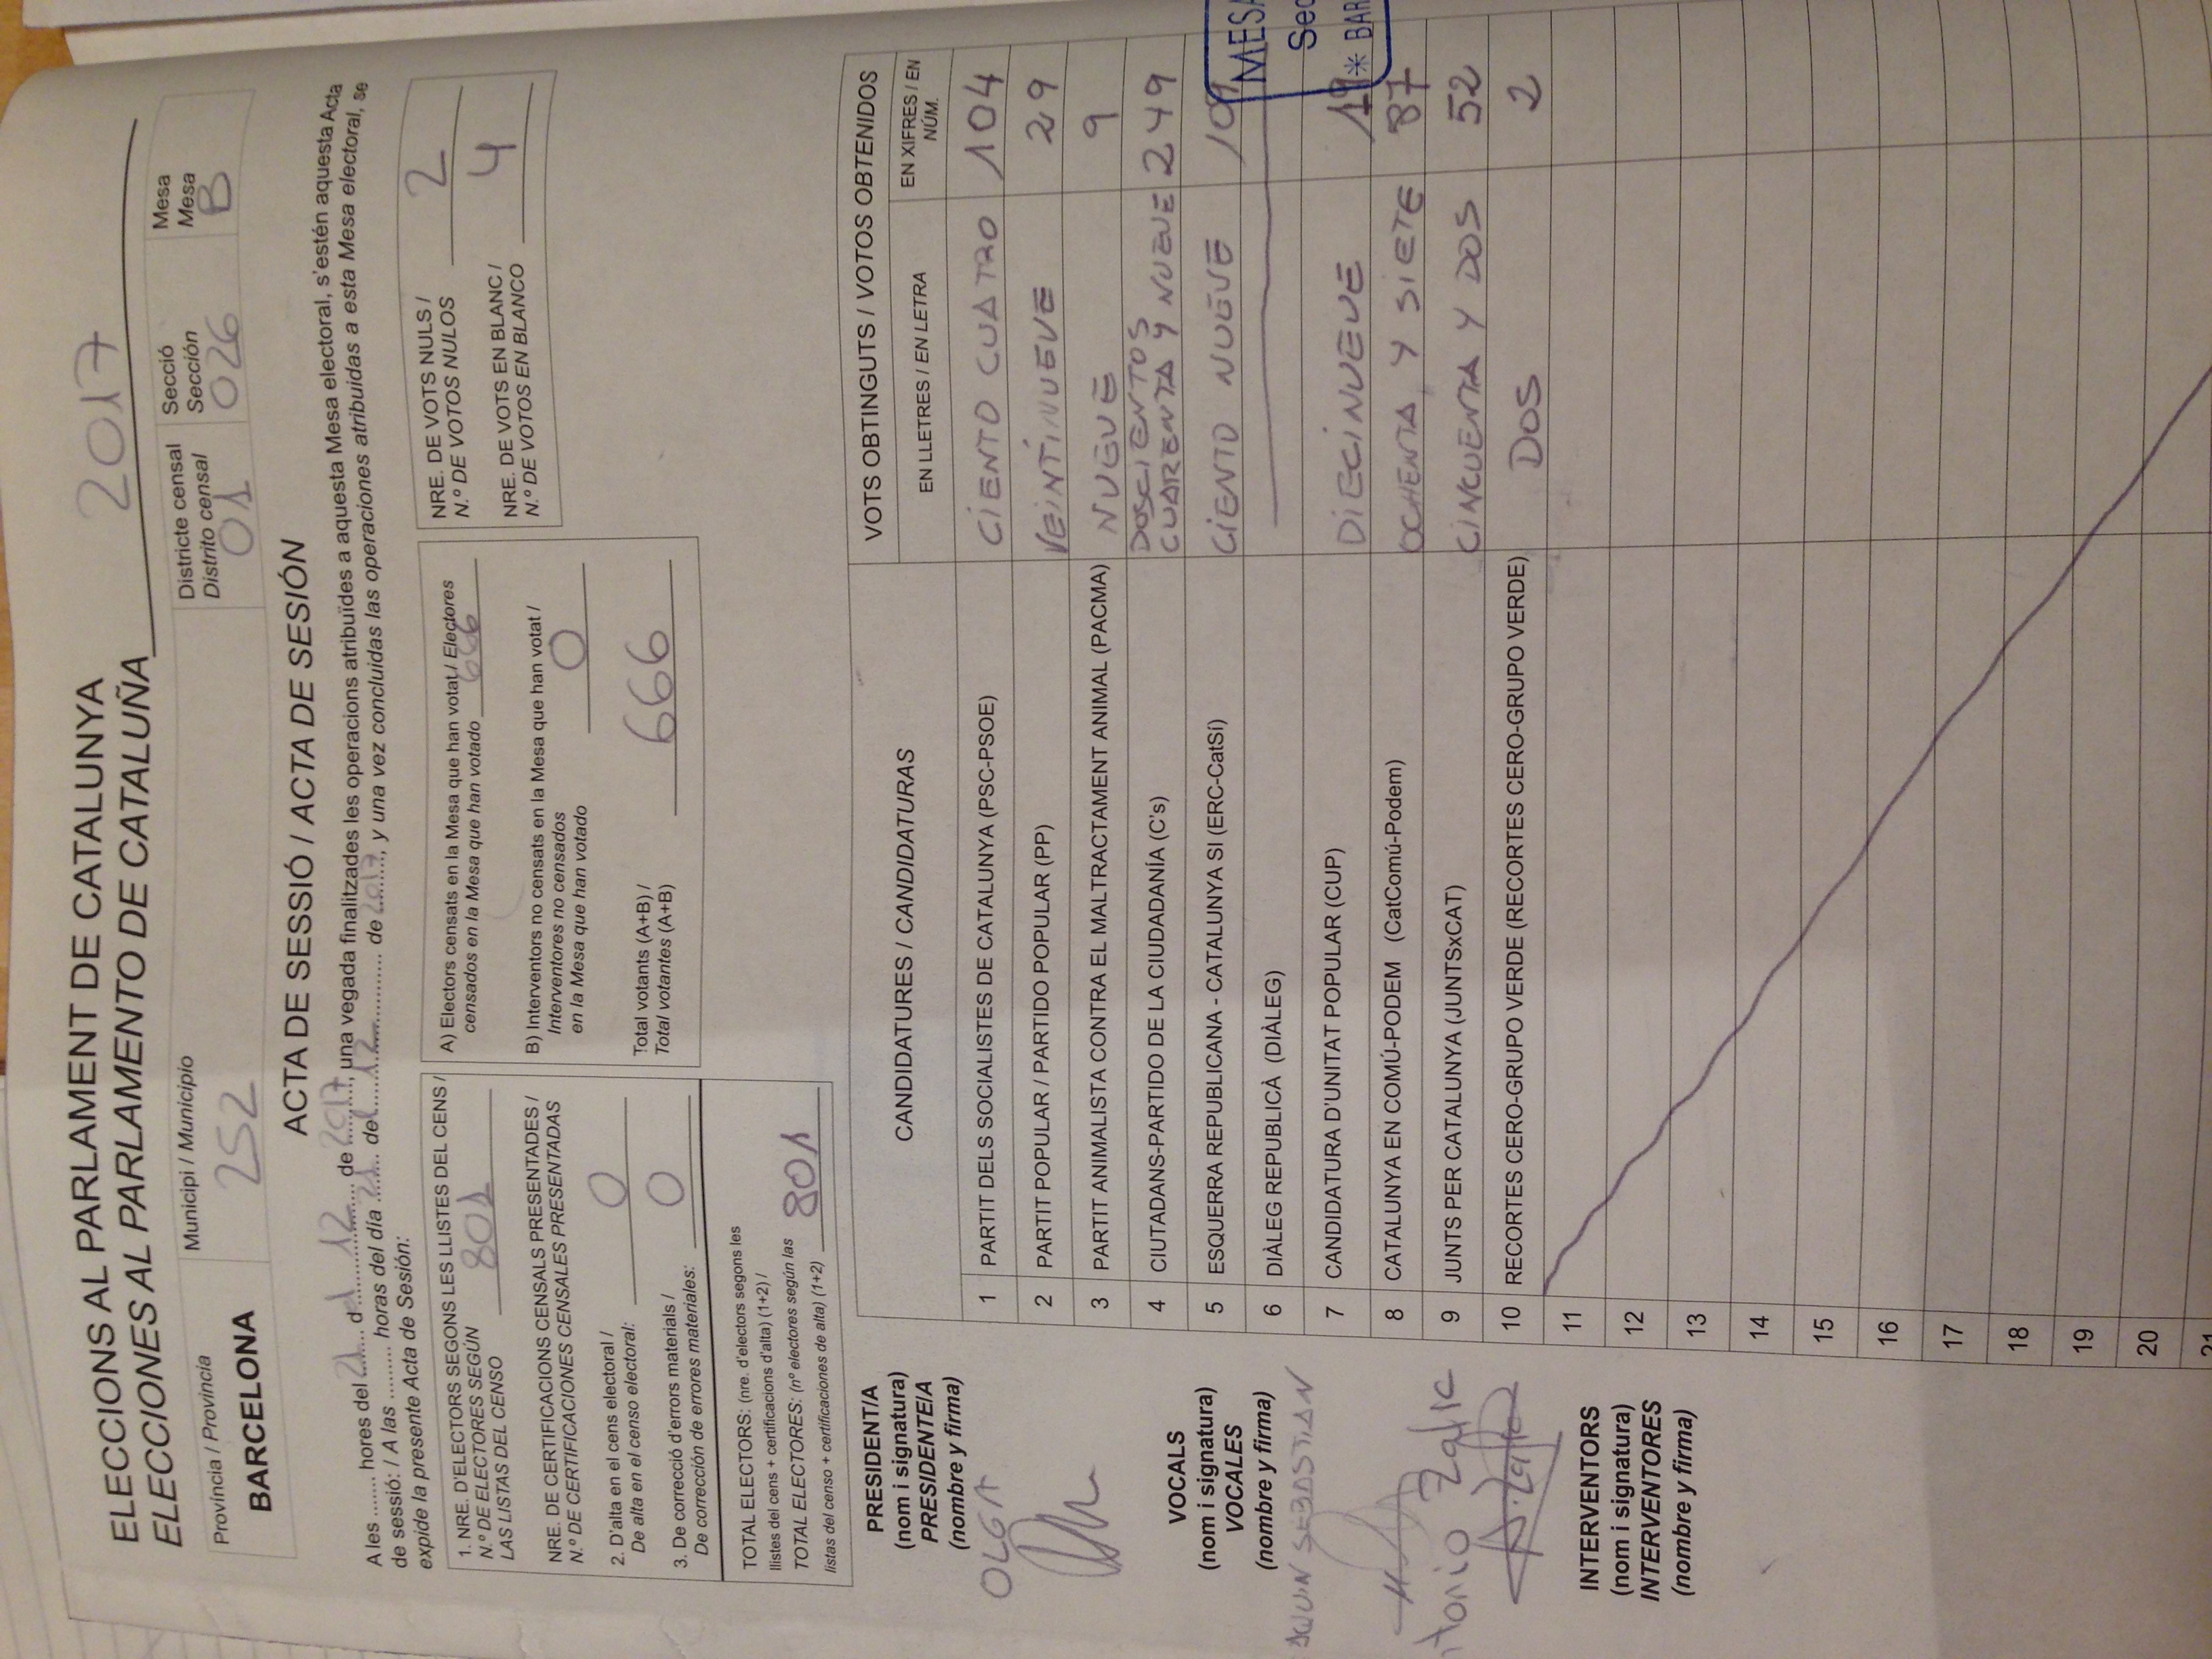 ELECCIONS AL PARLAMENT DE CATALUNYA
ELECCIONES AL PARLAMENTO DE CATALUÑA 2017
Província / Provincia
BARCELONA
Municipi / Municipio
252
Districte censal
Distrito censal
01
Secció
Sección
026
Mesa
Mesa
B
ACTA DE SESSIÓ / ACTA DE SESIÓN
A les ....... hores del 21 d 12 de 2017, una vegada finalitzades les operacions atribuïdes a aquesta Mesa electoral, s'estén aquesta Acta
de sessió: / A las ......... horas del día 21 de 12 de 2017, y una vez concluidas las operaciones atribuidas a esta Mesa electoral, se
expide la presente Acta de Sesión:
1. NRE. D'ELECTORS SEGONS LES LLISTES DEL CENS /
N.º DE ELECTORES SEGÚN
LAS LISTAS DEL CENSO 801
NRE. DE CERTIFICACIONS CENSALS PRESENTADES /
N.º DE CERTIFICACIONES CENSALES PRESENTADAS
2. D'alta en el cens electoral /
De alta en el censo electoral: 0
3. De correcció d'errors materials /
De corrección de errores materiales: 0
TOTAL ELECTORS: (nre. d'electors segons les
llistes del cens + certificacions d'alta) (1+2) /
TOTAL ELECTORES: (nº electores según las
listas del censo + certificaciones de alta) (1+2) 801
A) Electors censats en la Mesa que han votat / Electores
censados en la Mesa que han votado 666
B) Interventors no censats en la Mesa que han votat /
Interventores no censados
en la Mesa que han votado 0
Total votants (A+B) /
Total votantes (A+B) 666
NRE. DE VOTS NULS /
N.º DE VOTOS NULOS 2
NRE. DE VOTS EN BLANC /
N.º DE VOTOS EN BLANCO 4
PRESIDENT/A
(nom i signatura)
PRESIDENTE/A
(nombre y firma)
OLGA
VOCALS
(nom i signatura)
VOCALES
(nombre y firma)
AQUIN SEBASTIAN
INTERVENTORS
(nom i signatura)
INTERVENTORES
(nombre y firma)
CANDIDATURES / CANDIDATURAS
VOTS OBTINGUTS / VOTOS OBTENIDOS
EN LLETRES / EN LETRA
EN XIFRES / EN
NÚM.
1 PARTIT DELS SOCIALISTES DE CATALUNYA (PSC-PSOE) CIENTO CUATRO 104
2 PARTIT POPULAR / PARTIDO POPULAR (PP) VEINTINUEVE 29
3 PARTIT ANIMALISTA CONTRA EL MALTRACTAMENT ANIMAL (PACMA) NUEVE 9
4 CIUTADANS-PARTIDO DE LA CIUDADANÍA (C's) DOSCIENTOS
CUARENTA Y NUEVE 249
5 ESQUERRA REPUBLICANA - CATALUNYA SI (ERC-CatSí) CIENTO NUEVE 109
6 DIÀLEG REPUBLICÀ (DIÀLEG)
7 CANDIDATURA D'UNITAT POPULAR (CUP) DIECINUEVE 19
8 CATALUNYA EN COMÚ-PODEM (CatComú-Podem) OCHENTA Y SIETE 87
9 JUNTS PER CATALUNYA (JUNTSxCAT) CINCUENTA Y DOS 52
10 RECORTES CERO-GRUPO VERDE (RECORTES CERO-GRUPO VERDE) DOS 2
11
12
13
14
15
16
17
18
19
20
21
MESA
Sec
* BAR